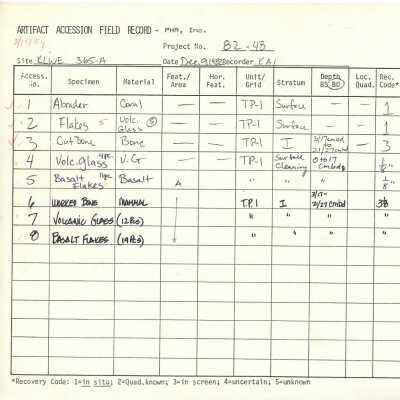 ARTIFACT ACCESSION FIELD RECORD - PHR, Inc.
Project No. 82-43
Site KLWE 365-A Date Dec. Recorder KAI
Access. No. Specimen Material Feat./Area Hor. Feat. Unit/Grid Stratum Depth BS BD Loc. Quad. Rec. Code*
1 Abrader Coral — — TP-1 Surface — — 1
2 Flakes 5 Volc. Glass (5) — — TP-1 Surface — — 1
3 Cut Bone Bone — — TP-1 I — 3
4 Volc. glass V.G — — TP-1 Surface Cleaning 0 to 17 Cmbd 1/8"
5 Basalt Flakes Basalt A " " " 1/8"
6 WORKED BONE MAMMAL TP.1 I 21/27 cmbd
7 VOLCANIC GLASS (12 pcs) " " "
8 BASALT FLAKES (19 pcs) " " "
*Recovery Code: 1=in situ; 2=Quad.known; 3=in screen; 4=uncertain; 5=unknown